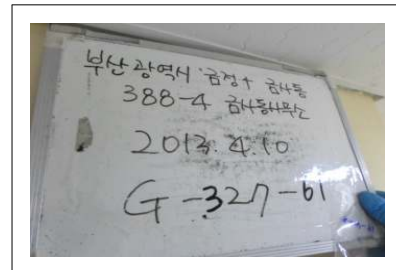 부산광역시 금정구 금사동
388-4 금사동사무소
2013.4.10
G-327-61